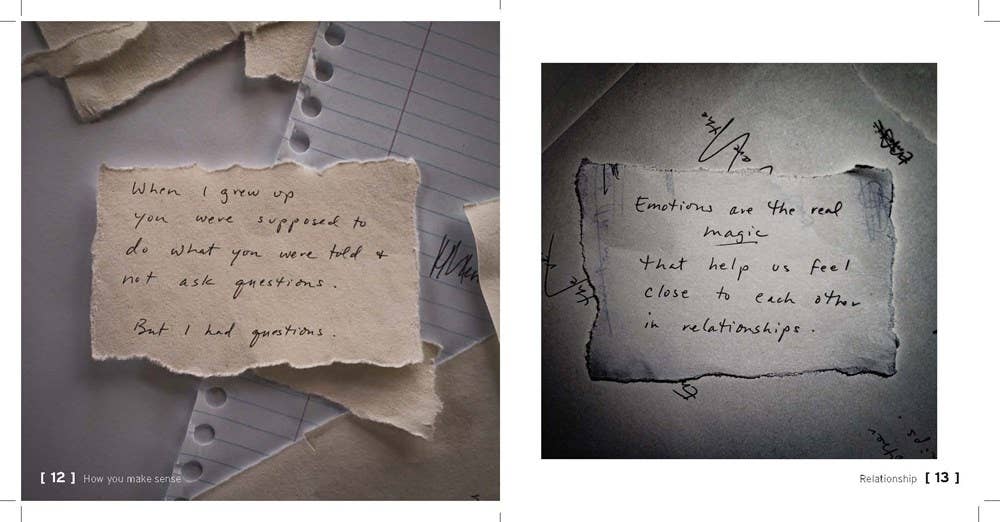 When I grew up
you were supposed to
do what you were told +
not ask questions.
But I had questions.
[ 12 ] How you make sense
Emotions are the real
magic
that help us feel
close to each other
in relationships.
Relationship [ 13 ]